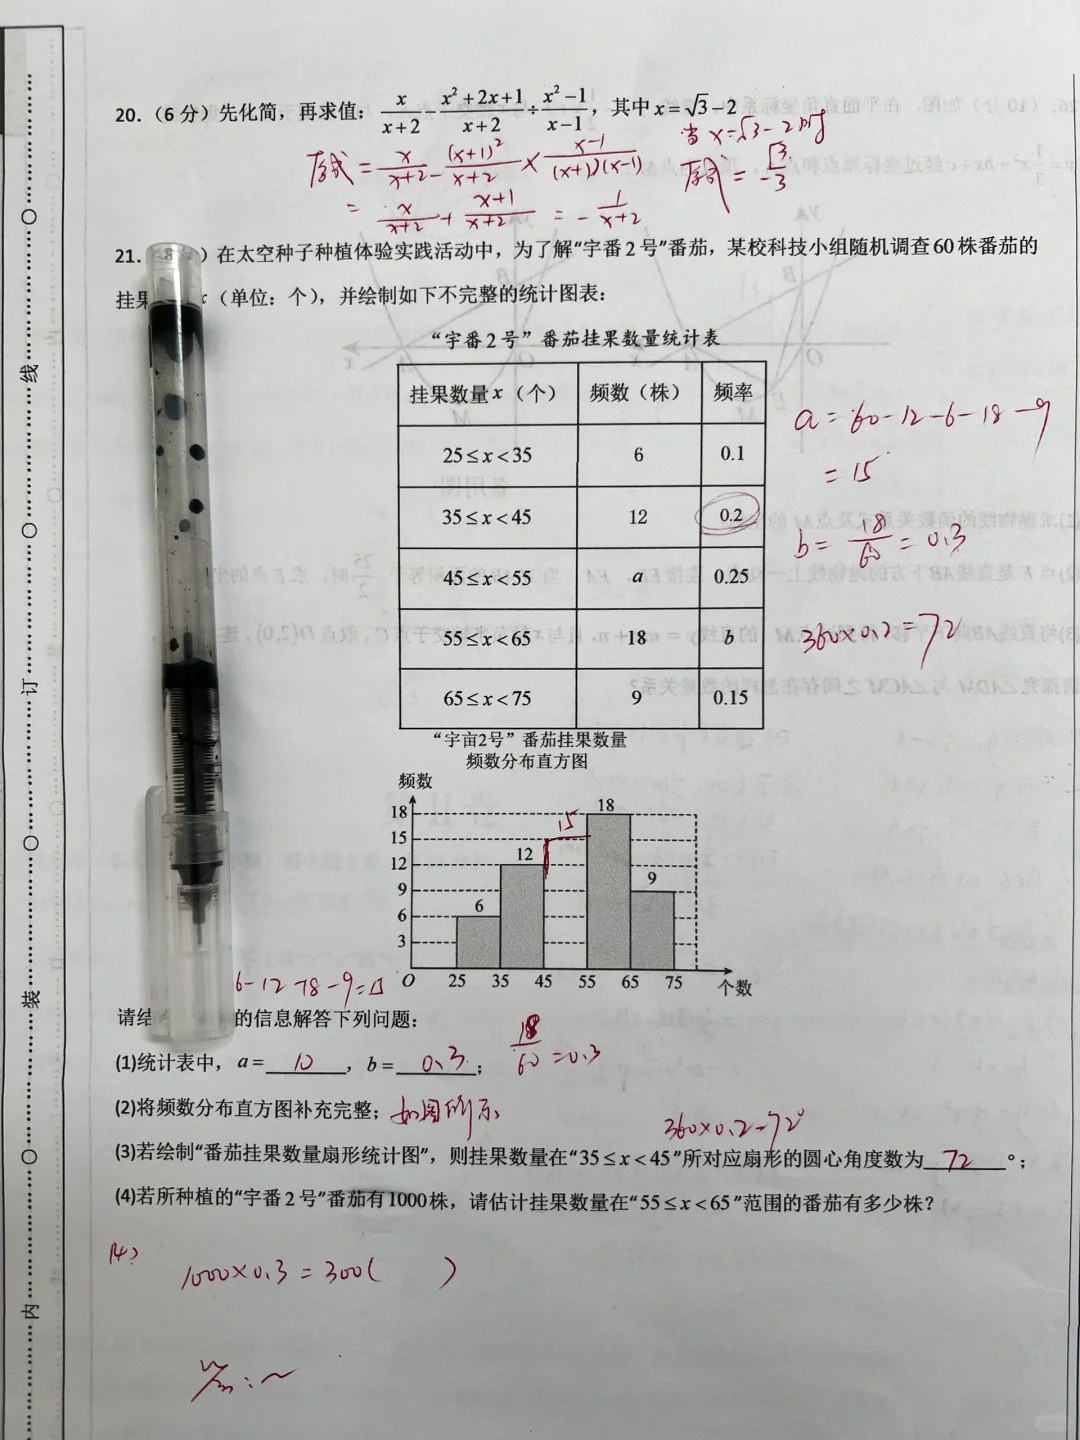 20. (6 分) 先化简，再求值： x/(x+2) - (x²+2x+1)/(x+2) ÷ (x²-1)/(x-1)，其中 x=√3-2
当 x=√3-2时
原式 = x/(x+2) - (x+1)²/(x+2) × (x-1)/((x+1)(x-1))
原式 = √3/-3
= x/(x+2) + (x+1)/(x+2) = - 1/(x+2)
21. ) 在太空种子种植体验实践活动中，为了解“宇番 2 号”番茄，某校科技小组随机调查 60 株番茄的
挂果 x（单位：个），并绘制如下不完整的统计图表：
“宇番 2 号”番茄挂果数量统计表
挂果数量 x（个） 频数（株） 频率
25≤x<35 6 0.1
35≤x<45 12 0.2
45≤x<55 a 0.25
55≤x<65 18 b
65≤x<75 9 0.15
a = 60-12-6-18-9
= 15
b = 18/60 = 0.3
360×0.2=72
“宇亩2号”番茄挂果数量
频数分布直方图
频数
18 15 12 9 6 3
6 12 15 18 9
O 25 35 45 55 65 75 个数
6-12-18-9=
请结 的信息解答下列问题：
18/60=0.3
(1)统计表中，a= ，b= 0.3 ；
(2)将频数分布直方图补充完整；如图所示
360×0.2=72°
(3)若绘制“番茄挂果数量扇形统计图”，则挂果数量在“35≤x<45”所对应扇形的圆心角度数为 72 °；
(4)若所种植的“宇番 2 号”番茄有1000株，请估计挂果数量在“55≤x<65”范围的番茄有多少株？
1000×0.3=300( )
答：~
线
订
装
内